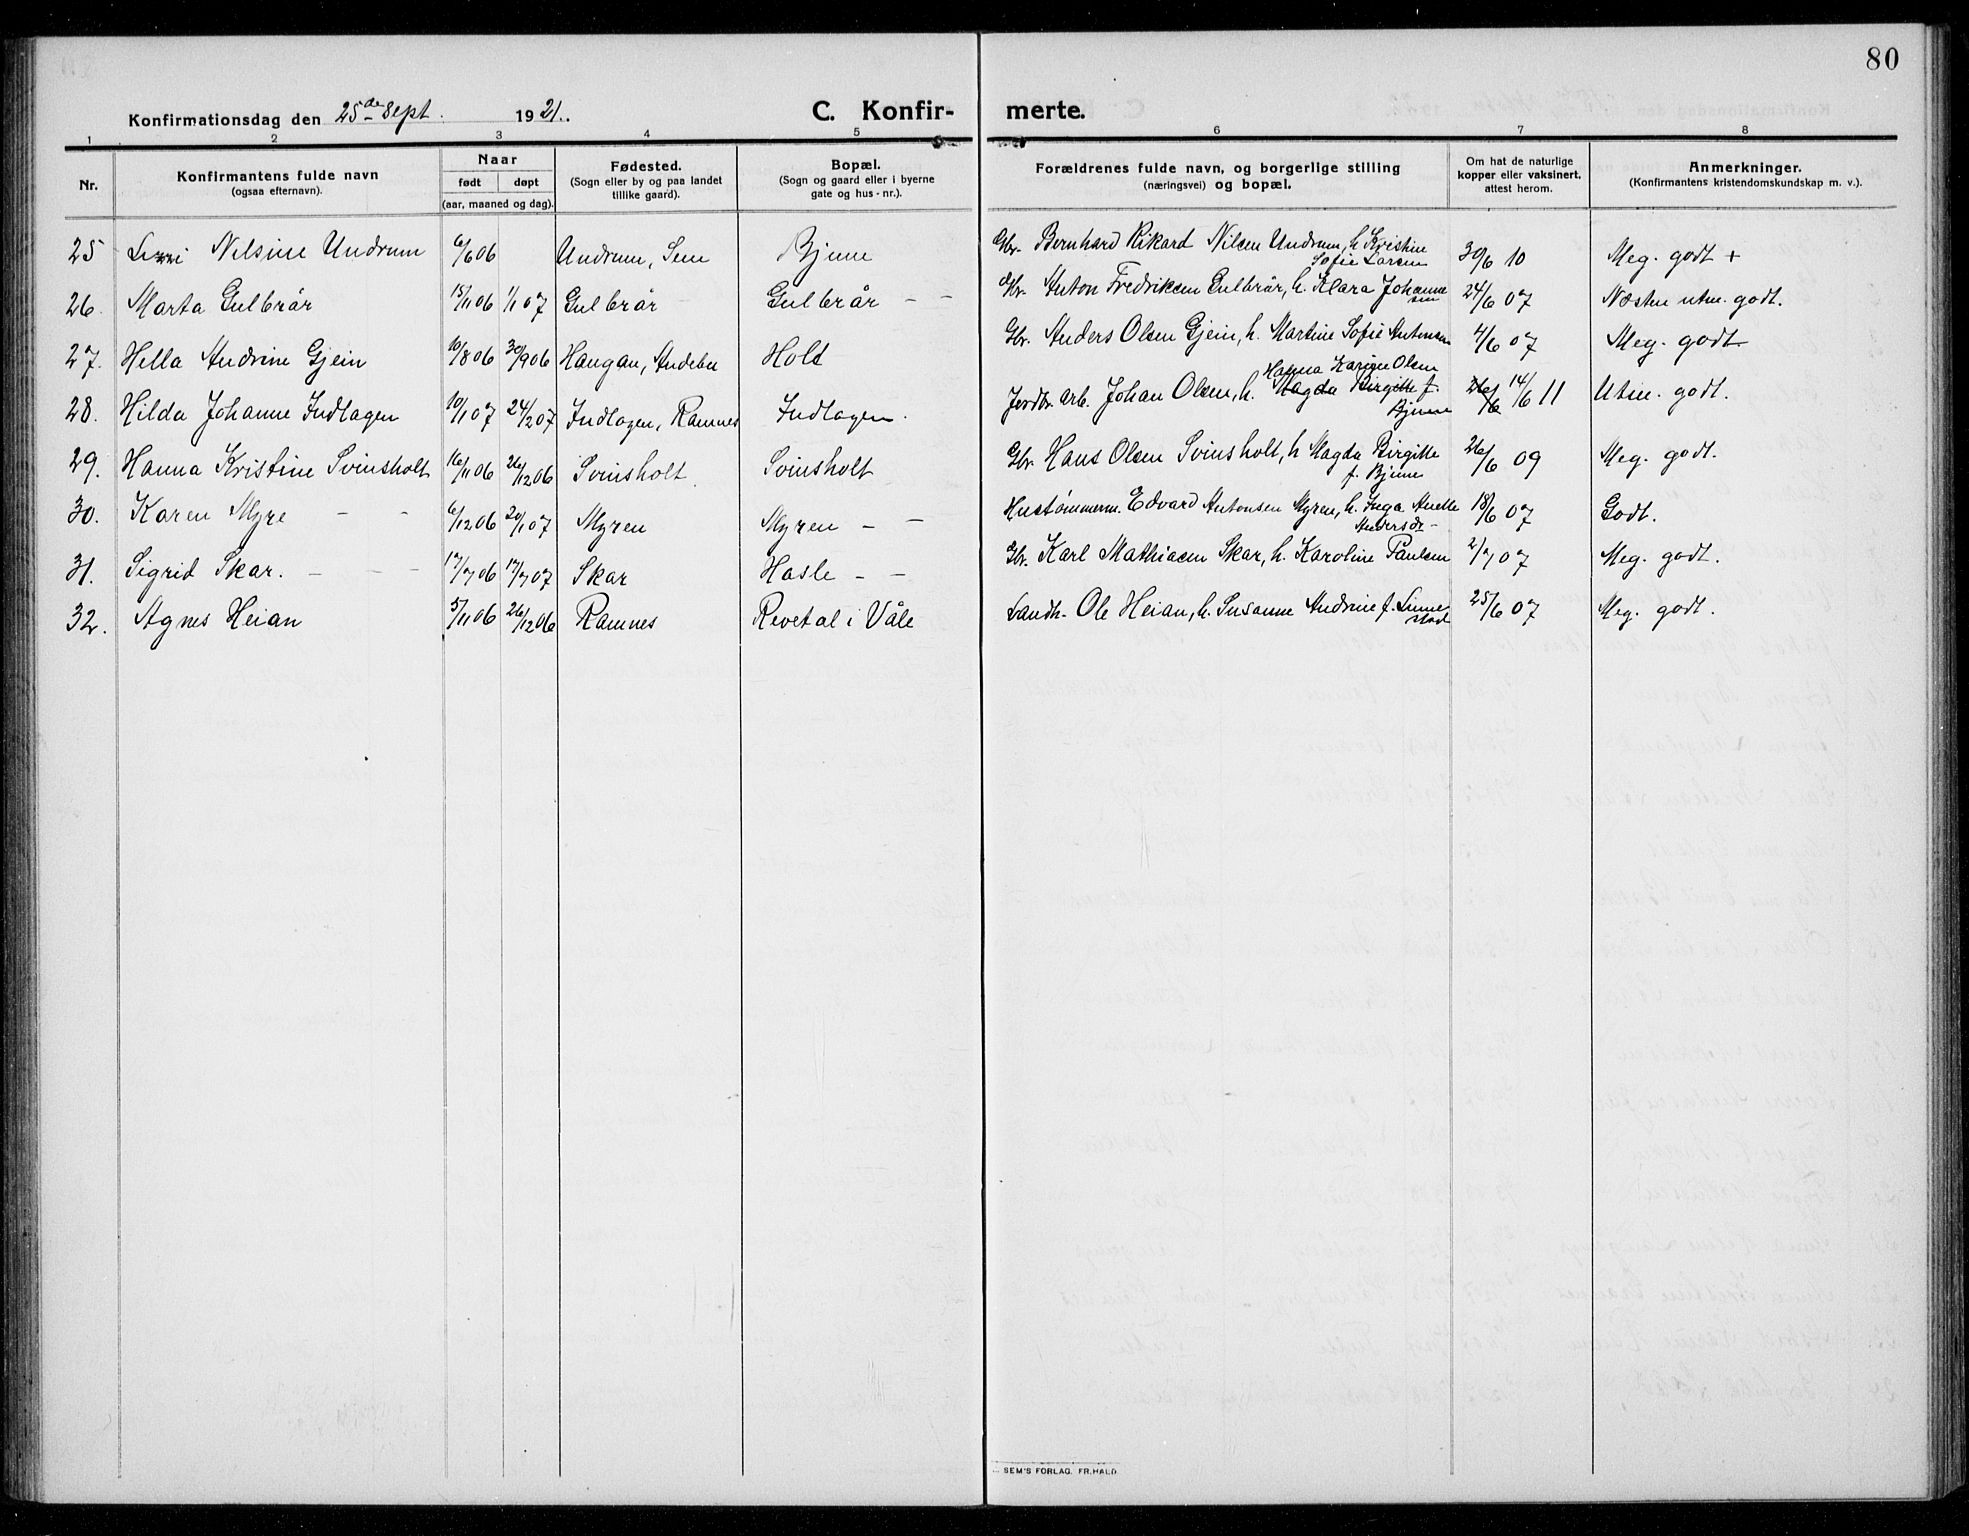 80
Konfirmationsdag den 25de Sept. 1921.
C. Konfir- merte.
1 2 3 4 5 6 7 8
Nr.
Konfirmantens fulde navn
(ogsaa efternavn).
Naar
født døpt
(aar, maaned og dag).
Fødested.
(Sogn eller by og paa landet
tillike gaard).
Bopæl.
(Sogn og gaard eller i byerne
gate og hus - nr.).
Forældrenes fulde navn, og borgerlige stilling
(næringsvei) og bopæl.
Om hat de naturlige
kopper eller vaksinert,
attest herom.
Anmerkninger.
(Konfirmantens kristendomskundskap m. v.).
25 Nilsine Undrum 6/6 06 Undrum, Sem Bjune Gbr. Bernhard Rikard Nilsen Undrum, h. Kristine
Sofie Larsen 30/6 10 Meg. godt +
26. Marta Gulbrår 15/11 06 1/1 07 Gulbrår Gulbrår — — Gbr. Anton Fredriksen Gulbrår, h. Klara Johanne
sen 24/6 07 Næsten utm. godt.
27. Hella Andrine Gjein 10/8 06 30/9 06 Haugan, Andebu Holt Gbr. Anders Olsen Gjein, h. Martine Sofie Antonsen 4/6 07 Meg. godt
Hanna Karine Olsen
28. Hilda Johanne Indlagen 10/1 07 24/2 07 Indlagen, Ramnes Indlagen. Jordbr. arb. Johan Olsen, h. Magda Birgitte f.
Bjune 26/6 14/6 11 Utm. godt.
29. Hanna Kristine Svinsholt 16/11 06 26/12 06 Svinsholt Svinsholt Gbr. Hans Olsen Svinsholt, h. Magda Birgitte
f. Bjune 26/6 09 Meg. godt.
30. Karen Myre - - 6/12 06 20/1 07 Myren Myren — — Hustømmerm. Edvard Antonsen Myren, h. Inga Anette
Andersdr - 18/6 07 Godt.
31. Sigrid Skar. - - - 17/7 06 17/7 07 Skar Hasle — — Gbr. Karl Mathiasen Skar, h. Karoline Paulsen 2/7 07 Meg. godt.
32. Agnes Heian 5/11 06 26/12 06 Ramnes Revetal i Våle Landh. Ole Heian, h. Susanne Andrine f. Linne
stad 25/6 07 Meg. godt.
SEM'S FORLAG. FR. HALD.